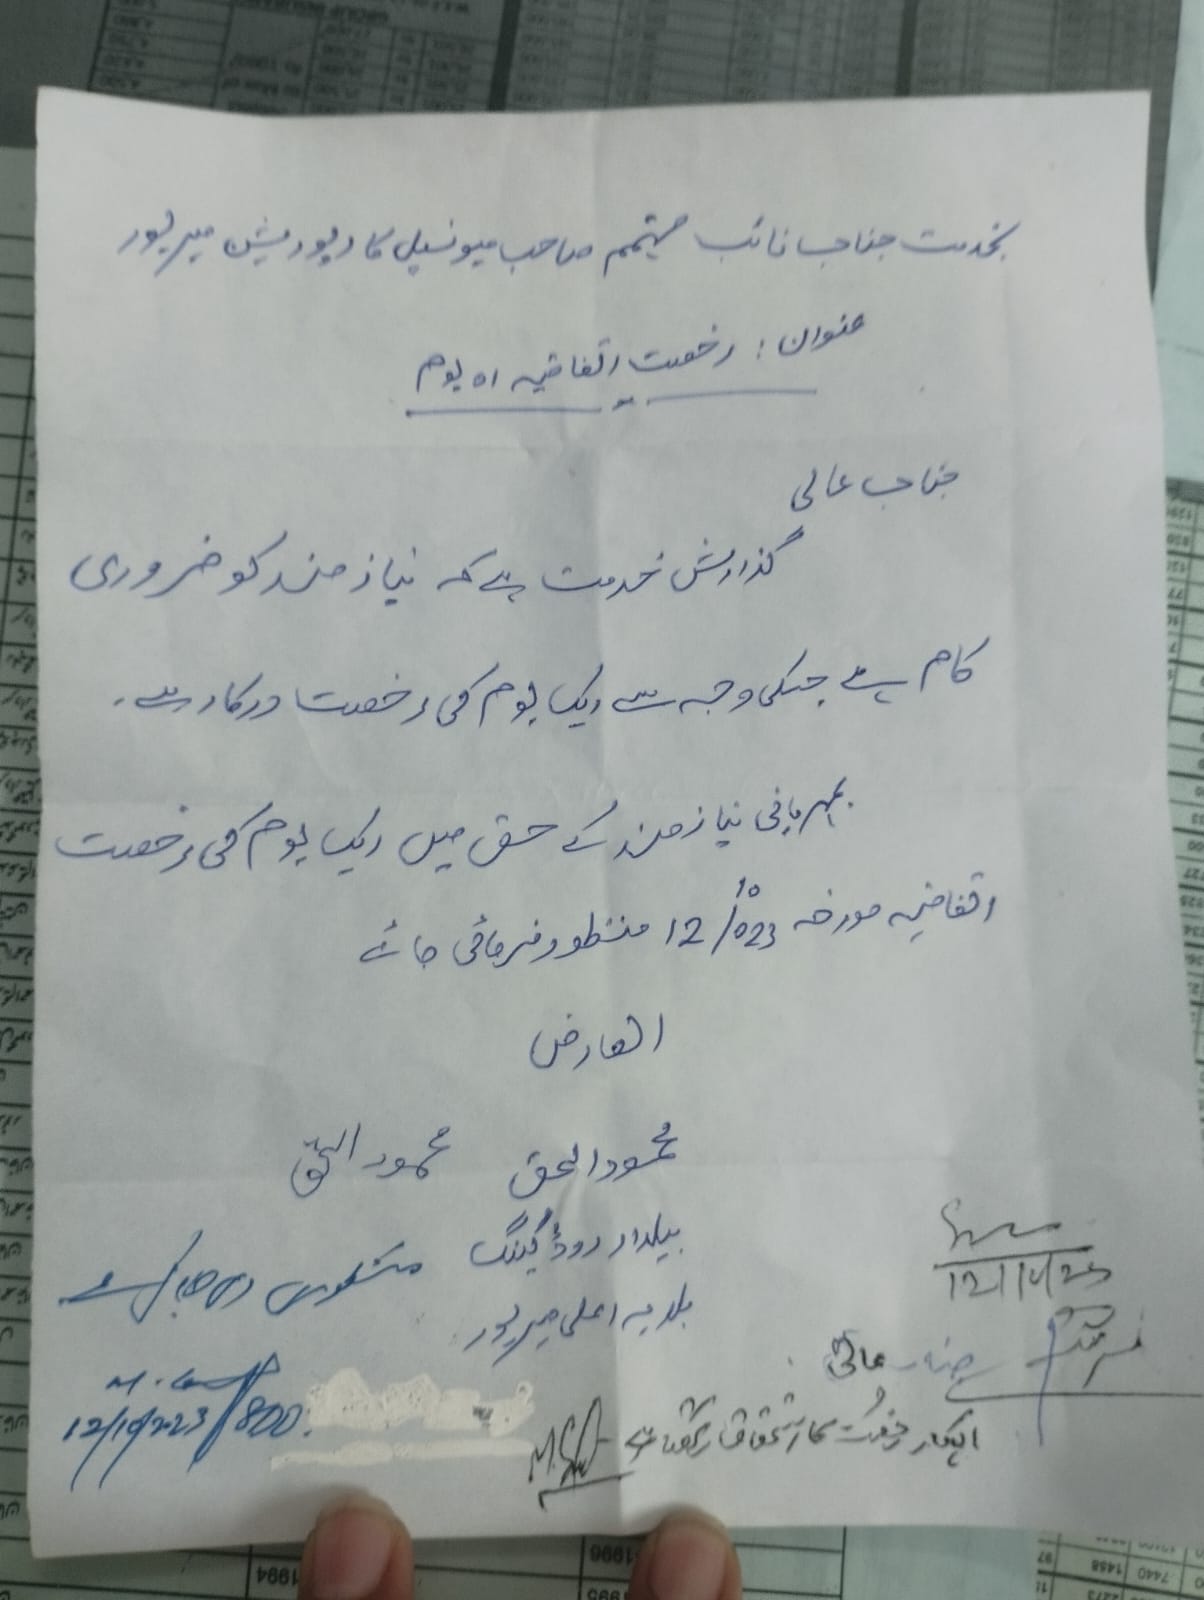 بخدمت جناب نائب مہتمم صاحب میونسپل کارپوریشن میرپور
عنوان: رخصت اتفاقیہ 01 یوم
جناب عالی
گذارش خدمت ہے کہ نیاز مند کو ضروری
کام ہے جسکی وجہ سے ایک یوم کی رخصت درکار ہے۔
بمہربانی نیاز مند کے حق میں ایک یوم کی رخصت
اتفاقیہ مورخہ 12/10/023 منظور فرمائی جائے
العارض
محمود الحق محمود الحق
بیلدار روڈ گینگ
بلدیہ اعلی میرپور
منظوری دی جاتی ہے۔
12/10/2023
12/10/23
جناب عالی
اہلکار رخصت کا استحقاق رکھتا ہے